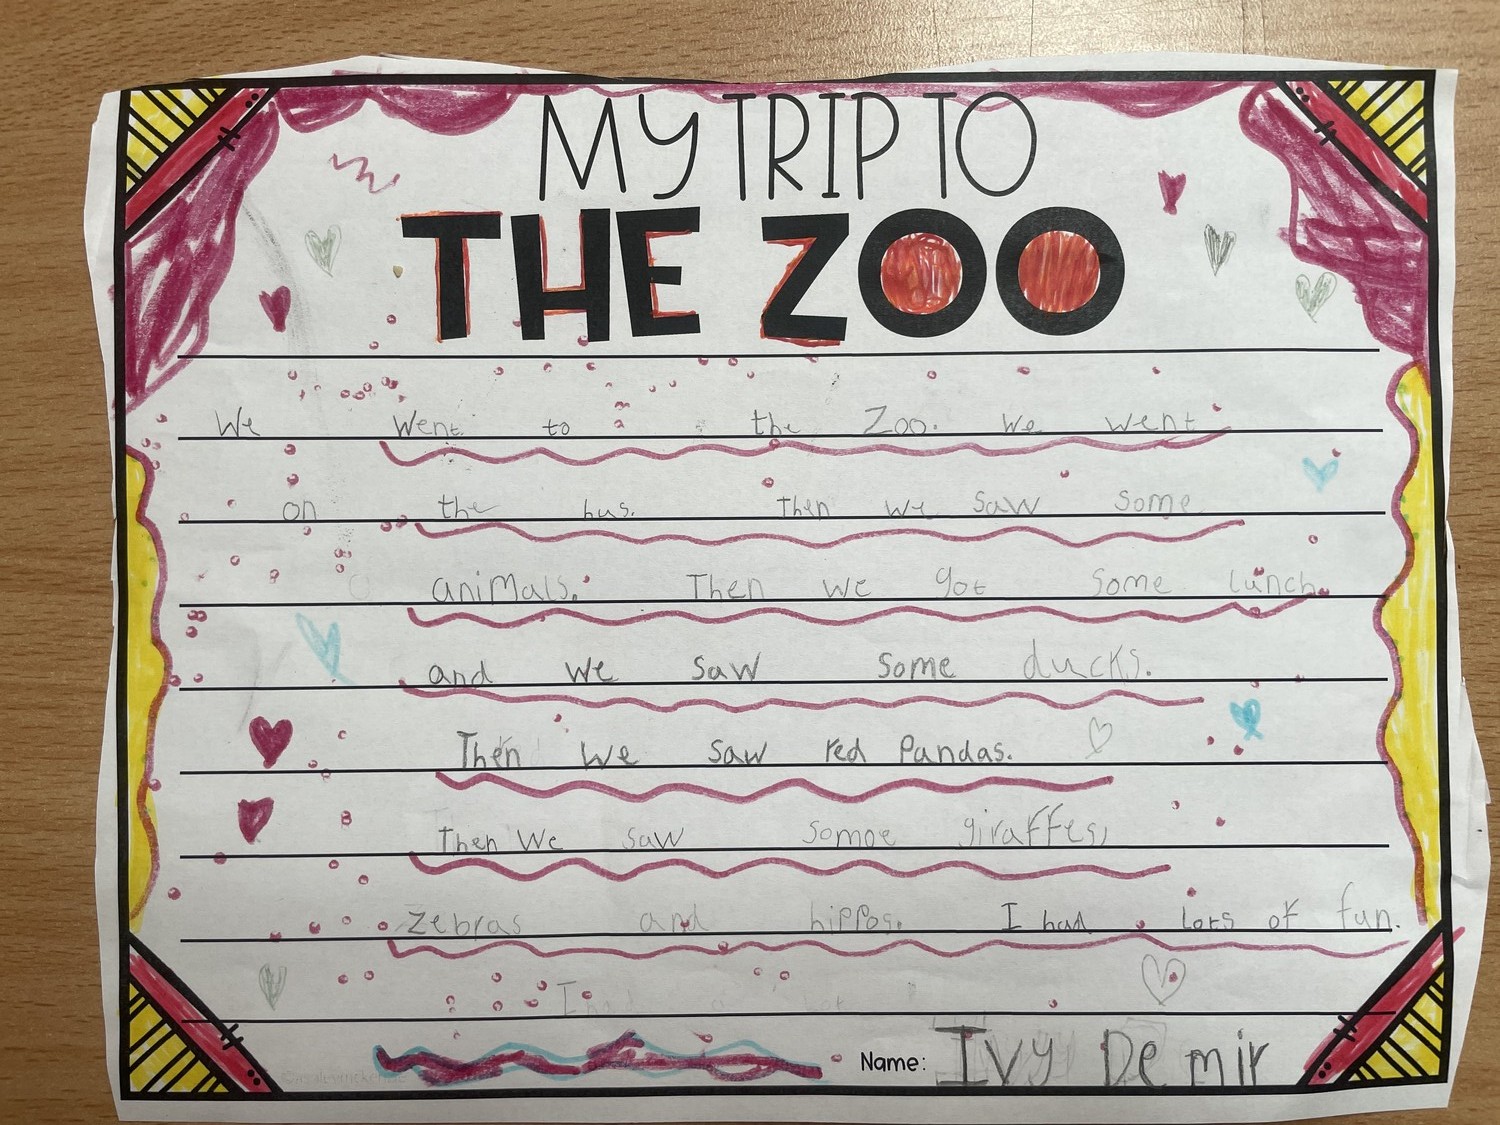 MY TRIP TO
THE ZOO
We went to the Zoo. We went
on the bus. Then we saw some
animals. Then we got some lunch.
and we saw some ducks.
Then we saw red Pandas.
Then We saw somoe giraffes,
Zebras and hippos. I had Lots of fun.
Name: Ivy Demir